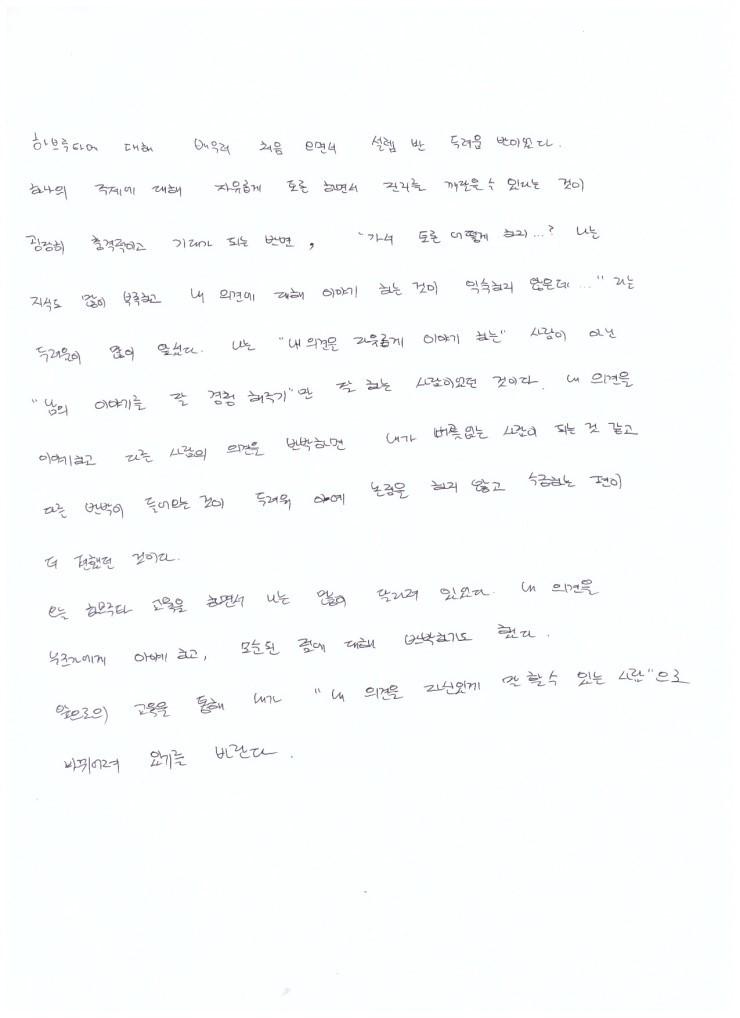 하브루타에 대해 배우러 처음 오면서 설렘 반 두려움 반이었다.
하나의 주제에 대해 자유롭게 토론 하면서 진리를 깨달을 수 있다는 것이
굉장히 충격적이고 기대가 되는 반면, "가서 토론 어떻게 하지...? 나는
지식도 많이 부족하고 내 의견에 대해 이야기 하는 것이 익숙하지 않은데..." 라는
두려움이 많이 앞섰다. 나는 "내 의견을 자유롭게 이야기 하는" 사람이 아닌
"남의 이야기를 잘 경청 해주기"만 잘 하는 사람이었던 것이다. 내 의견을
이야기하고 다른 사람의 의견을 반박하면 내가 버릇없는 사람이 되는 것 같고
다른 반박이 들어오는 것이 두려워 아예 논쟁을 하지 않고 수긍하는 편이
더 편했던 것이다.
오늘 하브루타 교육을 하면서 나는 많이 달라져 있었다. 내 의견을
누군가에게 이야기 하고, 모순된 점에 대해 반박하기도 했다.
앞으로의 교육을 통해 내가 "내 의견을 자신있게 말 할 수 있는 사람"으로
바뀌어져 있기를 바란다.